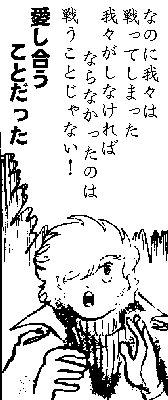 なのに我々は
戦ってしまった
我々がしなければ
ならなかったのは
戦うことじゃない！
愛し合う
ことだった